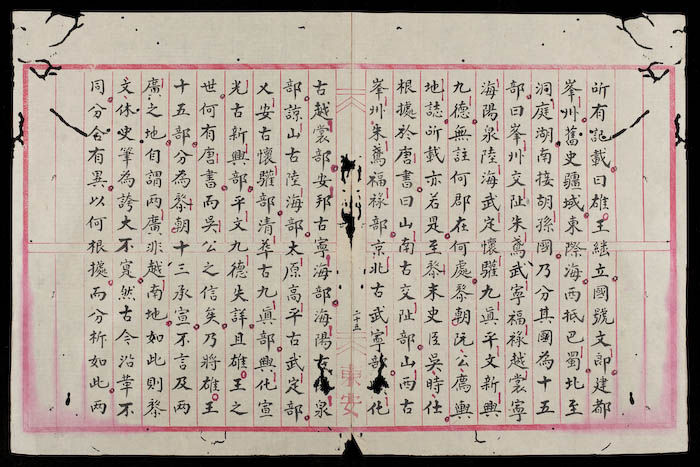 所有記載曰雄王継立國號文郎建都
峯州舊史疆域東際海西抵巴蜀北至
洞庭湖南接胡孫國乃分其國為十五
部曰峯州交趾朱鳶武寧福祿越裳寧
海陽泉陸海武定懷驩九眞平文新興
九德無註何郡在何處黎朝阮公廌輿
地誌所載亦若是至黎末史臣吳時仕
根據於唐書曰山南古交趾部山西古
峯州朱鳶福祿部京北古武寧部化
二十五
東安
古越裳部安邦古寧海部海陽古泉
部諒山古陸海部太原高平古武定部
乂安古懷驩部清華古九眞部興化宣
光古新興部平文九德失詳且雄王之
世何有唐書而吳公之信矣乃將雄王
十五部分為黎朝十三承宣不言及兩
廣之地旬謂兩廣非越南地如此則黎
文体史筆為誇大不寔然古今沿革不
同分合有異以何根據而分析如此兩